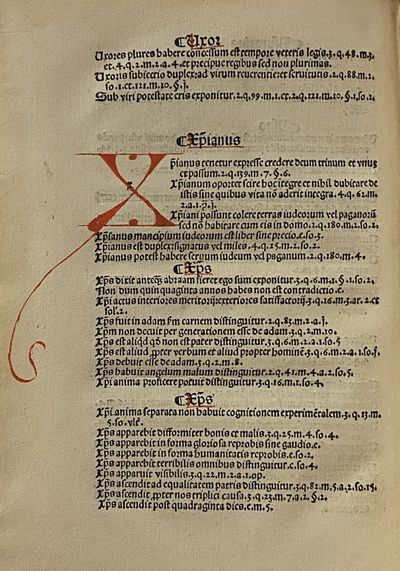 ¶Uxor
Uxores plures habere concessum est tempore veteris legis.3.q.48.m.3.
et.4.q.2.m.2.a.4.et precipue regibus sed non plurimas.
Uxoris subiectio duplex:ad virum reuerentie et seruitutis.2.q.88.m.2.
so.1.ct.121.m.10.§.j.
Sub viri potestate eris exponitur.2.q.99.m.1.et.2.q.121.m.10.§.1.so.2.
¶Xp̄ianus
Xp̄ianus tenetur expresse credere deum trinum et vnum
et passum.2.q.139.m.7.§.6.
Xp̄ianum oportet scire hoc integre et nihil dubitare de
istis sine quibus vita nō aderit integra.4.q.62.m.
2.a.1.
Xp̄iani possunt colere terras iudeorum vel paganorū
sed nō habitare cum eis in domo.2.q.180.m.2.so.2.
Xp̄ianus mancipium iudeorum est liber sine precio.e.so.3.
Xp̄ianus est duplex:signatus vel miles.4.q.25.m.2.so.2.
Xp̄ianus potest habere seruum iudeum vel paganum.2.q.180.m.4.
¶Xp̄s
Xp̄s dixit anteq̄ abraam fieret ego sum exponitur.3.q.6.m.1.§.1.so.2.
Non dum quinquaginta annos habes non est contradictio.e.
Xp̄i actus interiores meritorij:exteriores satisfactorij.3.q.16.m.3.ar.2.et
sol.2.
Xp̄s fuit in adam scḋm carnem distinguitur.2.q.83.m.2.j.
Xp̄m non decuit per generationem esse de adam.3.q.2.m.10.
Xp̄s est aliqd qḋ non est pater distinguitur.3.q.6.m.2.a.1.so.5
Xp̄s est aliud propter verbum et aliud propter hominē.3.q.6.m.2.a.1.so.j.
Xp̄s debuit esse de adam.3.q.2.m.8.
Xp̄s habuit angelum malum distinguitur.2.q.41.m.4.a.2.so.5.
Xp̄i anima proficere potuit distinguitur.3.q.16.m.1.so.4.
¶Xp̄s
Xp̄i anima separata non habuit cognitionem experimētalem.3.q.13.m.
5.so.vlt.
Xp̄s apparebit difformiter bonis et malis.3.q.25.m.4.so.4.
Xp̄s apparebit in forma gloriosa reprobis sine gaudio.e.
Xp̄s apparebit in forma humanitatis reprobis.e.so.2.
Xp̄s apparebit terribilis omnibus distinguitur.e.so.4.
Xp̄s apparuit visibilis.3.q.22.m.2.a.1.op.
Xp̄s ascendit ad equalitatem patris distinguitur.3.q.82.m.5.a.2.so.15.
Xp̄s ascendit propter nos triplici causa.3.q.23.m.7.a.2.§.2.
Xp̄s ascendit post quadraginta dies.e.m.5.